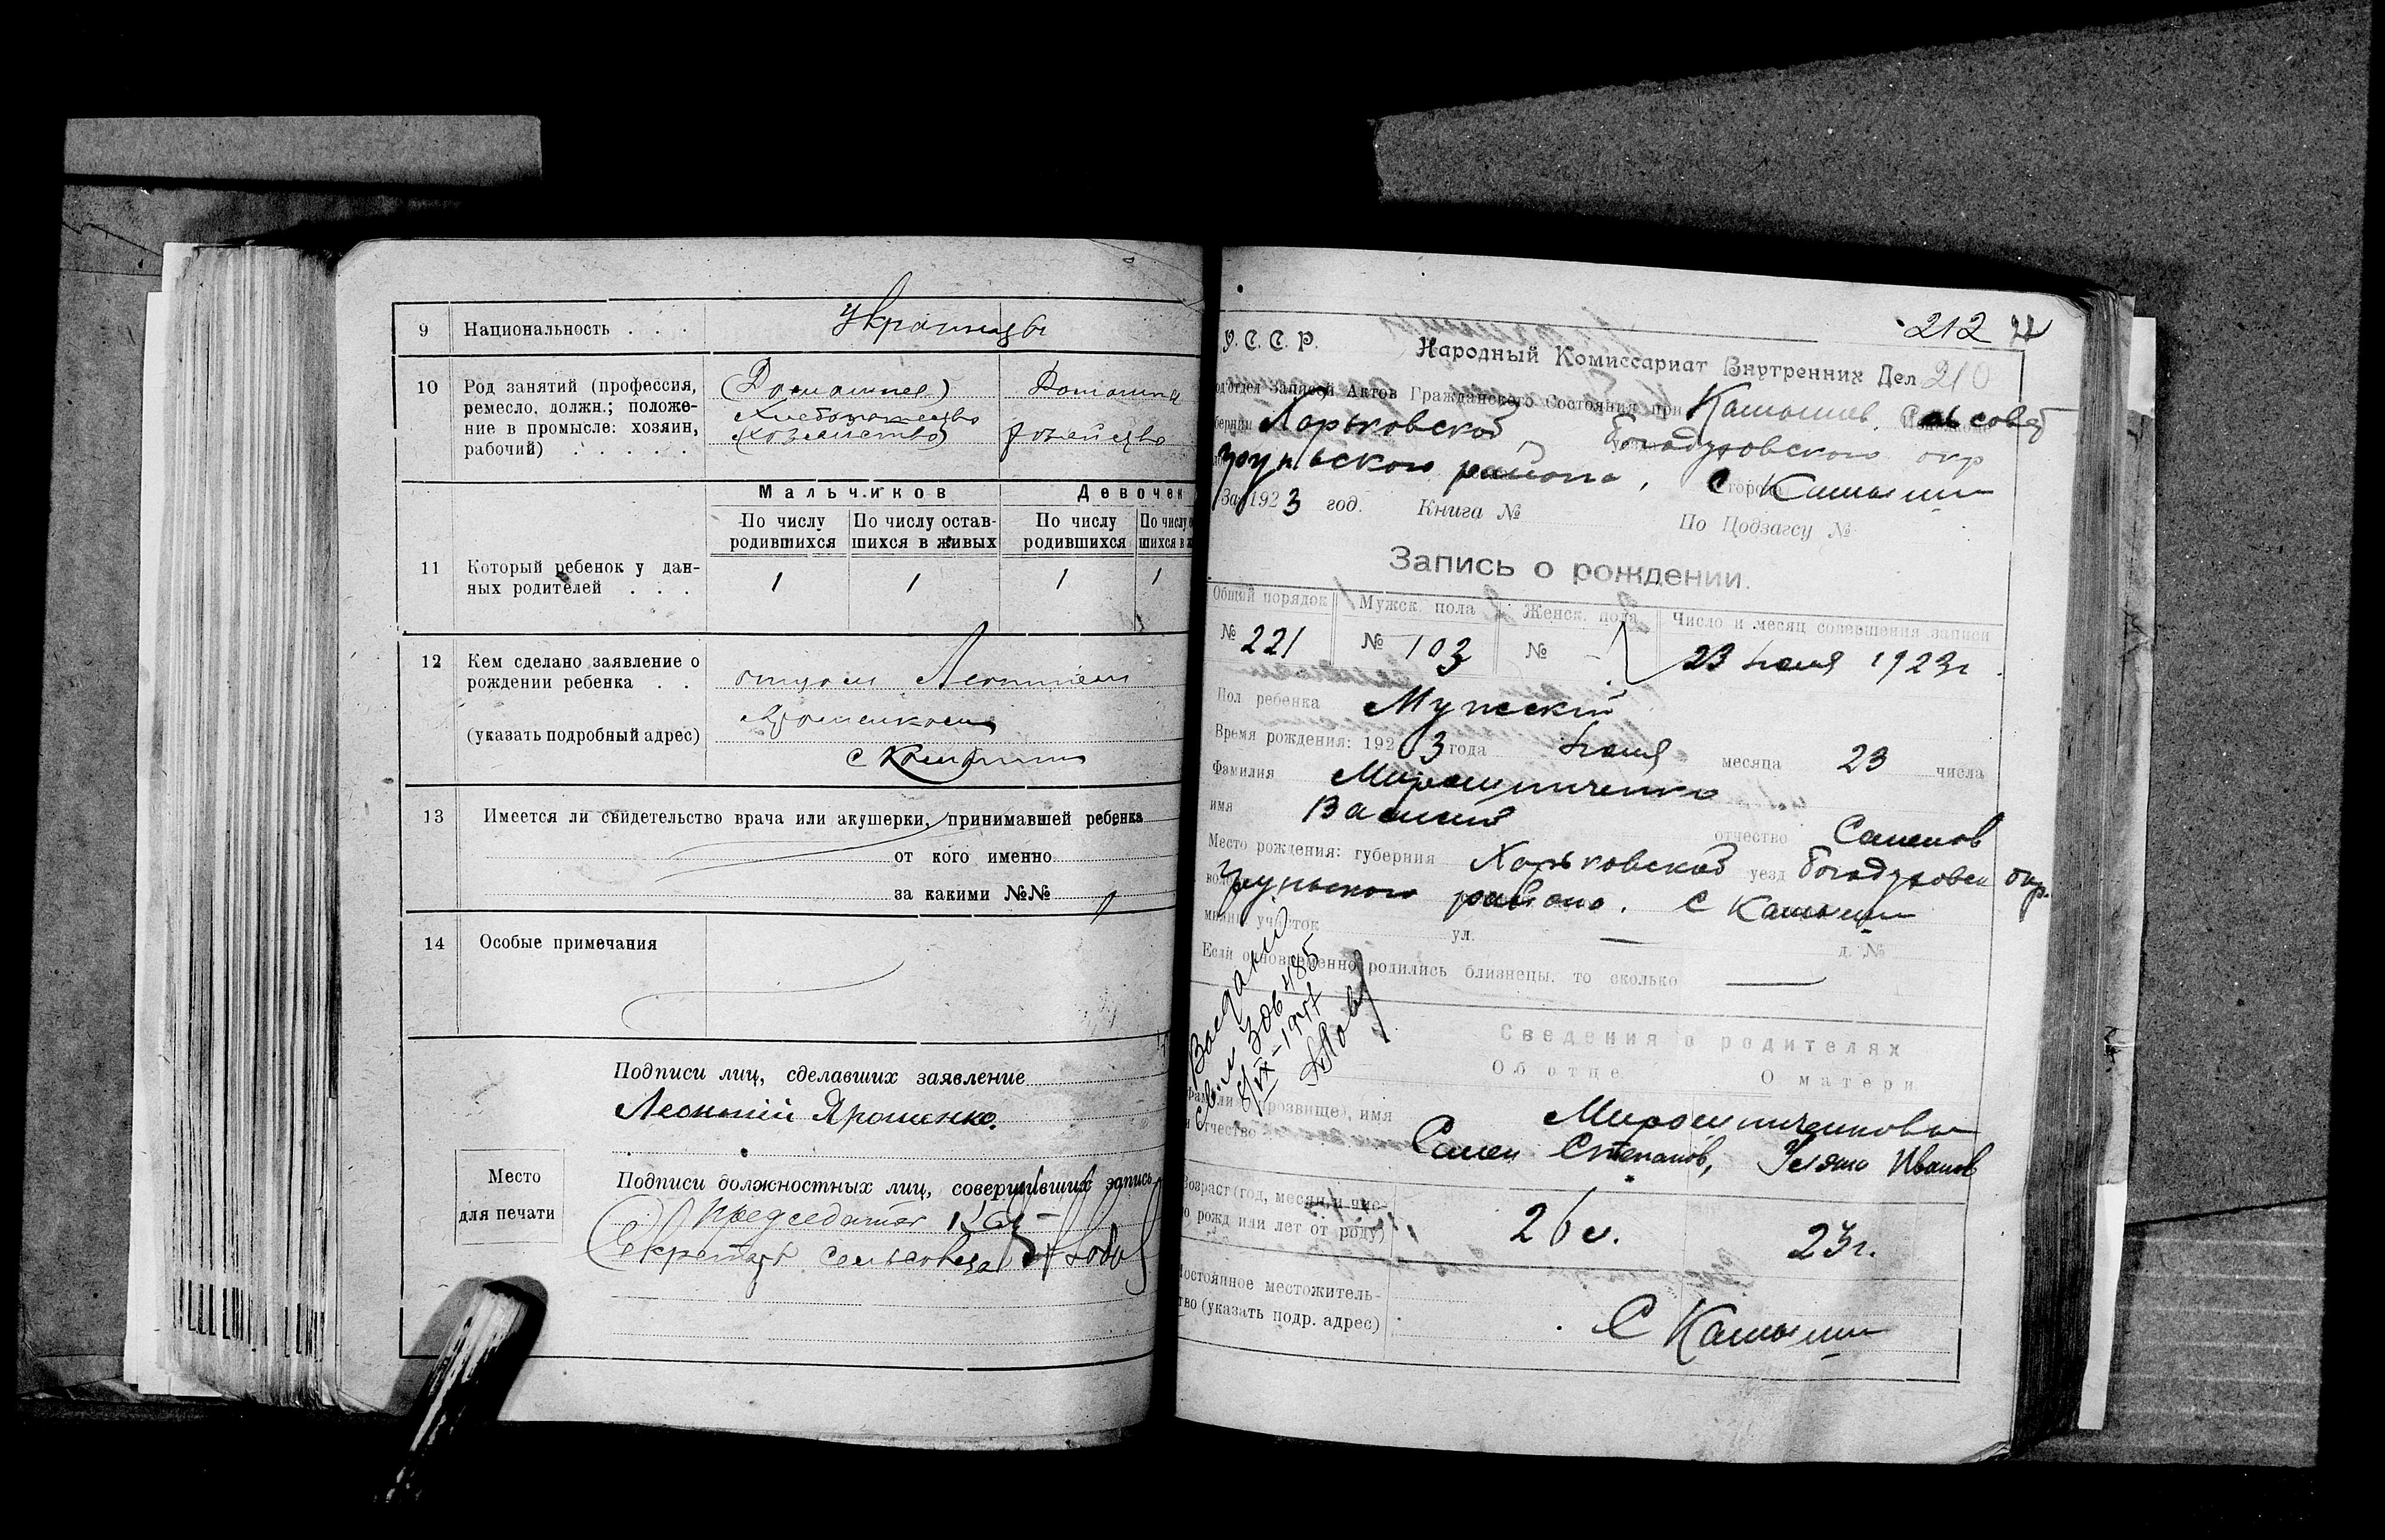 9 Национальность . . . Украинцы
10 Род занятий (профессия,
ремесло, должн.; положе-
ние в промысле: хозяин,
рабочий) . . . . .
(Домашнее) Домашне
Хлебопашество
(хозяйство)
11 Который ребенок у дан-
ных родителей . . .
Мальчиков Девочек
По числу родившихся По числу остав-
шихся в живых По числу родившихся По числу
1 1 1 1
12 Кем сделано заявление о
рождении ребенка . .
(указать подробный адрес)
отцом Леонтием
Ярошенком
с Камыши
13 Имеется ли свидетельство врача или акушерки, принимавшей ребенка
от кого именно
за какими №№
14 Особые примечания
Подписи лиц, сделавших заявление
Леонтий Ярошенко.
Место
для печати
Подписи должностных лиц, совершивших запись
Председатель
Секретарь сельсовета
212
У. С. С. Р.
Народный Комиссариат Внутренних Дел 210
отдел записей Актов Гражданского Состояния при Камышев. сельсовет
Харьковской Богодуховского окр
района, с Камыши
За 1923 год. Книга № По Подзагсу №
Запись о рождении.
Общий порядок Мужск. пола Женск. пола Число и месяц совершения записи
№ 221 № 103 № — 23 1923г
Пол ребенка Мужский
Время рождения: 1923 года месяца 23 числа
Фамилия Мирошниченко
имя Василий отчество Семенов
Место рождения: губерния Харьковской уезд Богодуховск окр.
района. с Камыши
участок ул. — д. №
Если одновременно родились близнецы, то сколько —
Выдано
св. № 485
8/IX-1947
Сведения о родителях
Об отце О матери
(прозвище), имя
отчество
Мирошниченковы
Семен Степанов, Ульяна Иванов
Возраст (год, месяц и чис-
рожд или лет от роду)
26 л. 23 г.
Постоянное местожитель-
ство (указать подр. адрес)
С Камыши